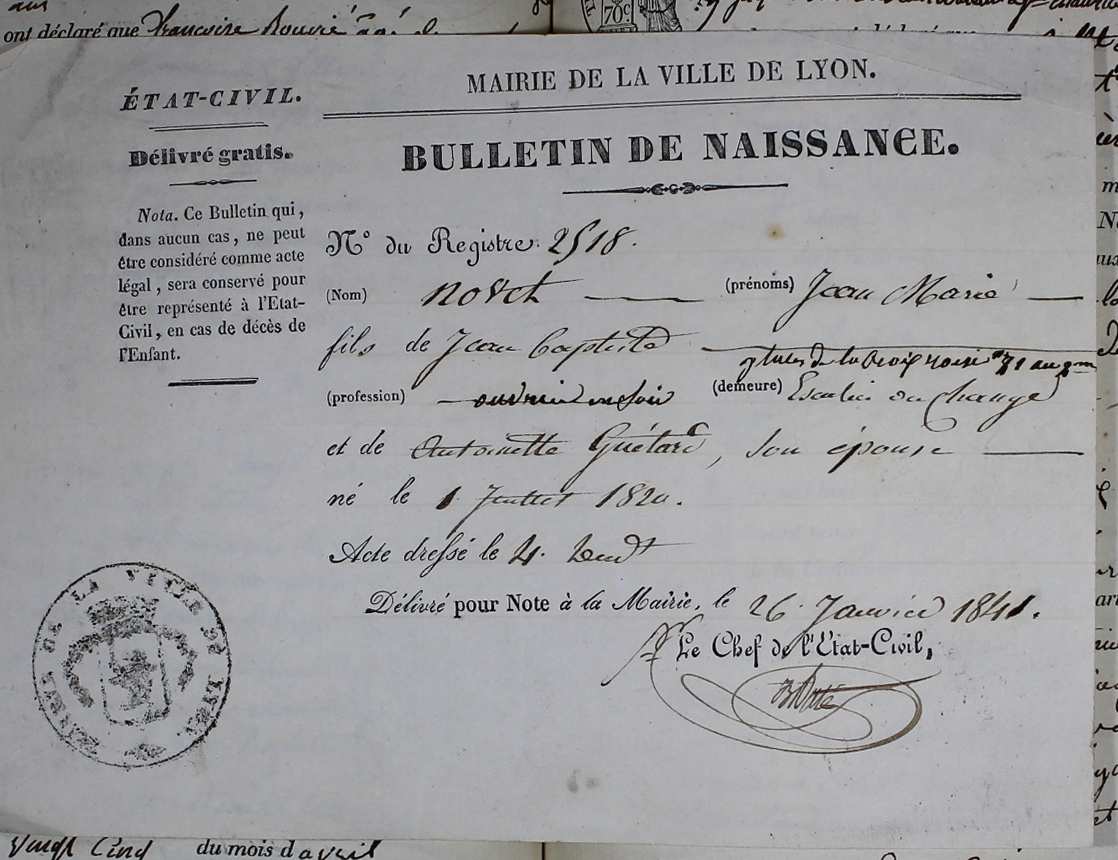 ont déclaré que françoise
70c
MAIRIE DE LA VILLE DE LYON.
ÉTAT-CIVIL.
Délivré gratis.
Nota. Ce Bulletin qui,
dans aucun cas, ne peut
être considéré comme acte
légal, sera conservé pour
être représenté à l'Etat-
Civil, en cas de décès de
l'Enfant.
BULLETIN DE NAISSANCE.
N° du Registre. 2518.
(Nom) (prénoms) Jean Marie
fils de Jean Baptiste
(profession) ouvrier en soie (demeure)
et de Antoinette Guétard, son épouse
né le 1 Juillet 1820.
Acte dressé le 4. dudt
Délivré pour Note à la Mairie, le 26. Janvier 1841.
Le Chef de l'Etat-Civil,
MAIRIE DE LA VILLE DE LYON
vingt cinq du mois d'avril